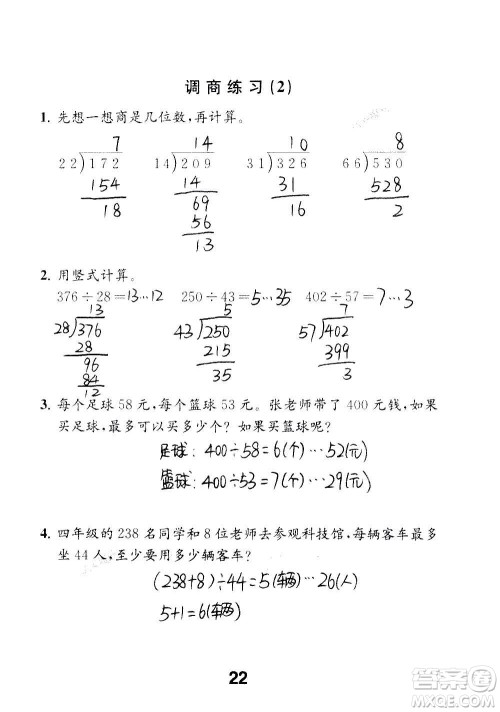 调商练习(2)
1. 先想一想商是几位数,再计算。
7 14 10 8
22)172 14)209 31)326 66)530
154 14 31 528
18 69 16 2
56
13
2. 用竖式计算。
376÷28=13…12 250÷43=5…35 402÷57=7…3
13 5 7
28)376 43)250 57)402
28 215 399
96 35 3
84
12
3. 每个足球 58 元,每个篮球 53 元。张老师带了 400 元钱,如果
买足球,最多可以买多少个?如果买篮球呢?
足球:400÷58=6(个)…52(元)
篮球:400÷53=7(个)…29(元)
4. 四年级的 238 名同学和 8 位老师去参观科技馆,每辆客车最多
坐 44 人,至少要用多少辆客车?
(238+8)÷44=5(辆)…26(人)
5+1=6(辆)
22
答案圈
MXQE.COM